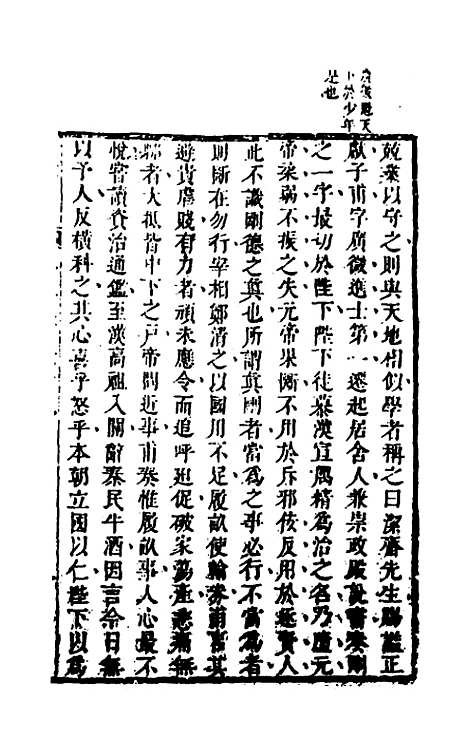 是也
兢業以守之則與天地相似學者稱之曰潔齋先生賜諡正
獻子甫字廣微進士第一遷起居舍人兼崇政殿說書奏剛
之一字最切於陛下陛下徒慕漢宣厲精為治之名乃墮元
帝柔弱不振之失元帝果斷不用於斥邪佞反用於逐賢人
此不識剛德之眞也所謂眞剛者當爲之事必行不當爲者
則斷在勿行宰相鄭清之以國用不足履畝使輸券甫言其
避貴虐賤有力者頑未應令而追呼迫促破家蕩產悲痛無
聊者大抵皆中下之戶帝問近事甫奏惟履畝事人心最不
悅嘗讀資治通鑑至漢高祖入關辭秦民牛酒因言今日無
以予人反橫科之其心喜乎怒乎本朝立國以仁陛下以爲